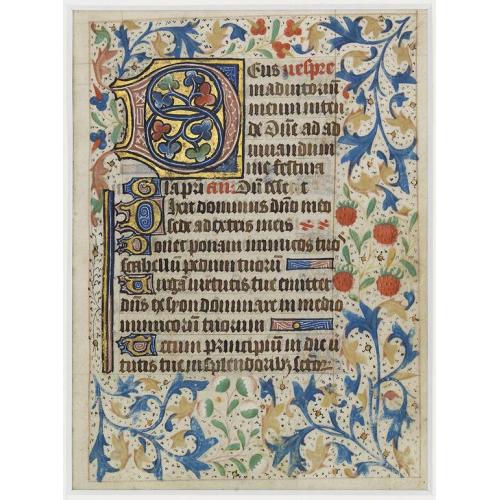 Deus vespre
in adiutoriu
meum inten
de Dne ad ad
iuvandum
me festina
Gla pri an Dixit
Dixit dominus dno meo
sede a dextris meis
Donec ponam inimicos tuos
scabellu pedum tuorum
Virga virtutis tue emittet
dns ex syon dominare in medio
inimicoru tuorum
Tecum principium in die vir
tutis tue in splendoribz sctor